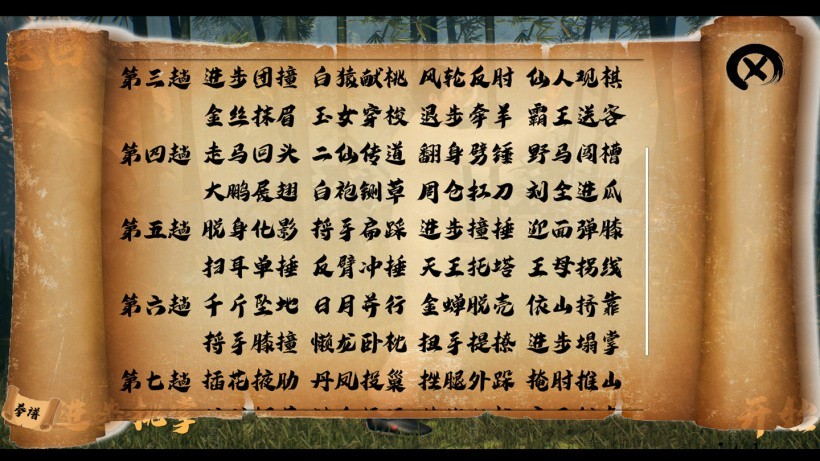 第三趟 进步团撞 白猿献桃 风轮反肘 仙人观棋
金丝抹眉 玉女穿梭 退步牵羊 霸王送客
第四趟 走马回头 二仙传道 翻身劈锤 野马闯槽
大鹏展翅 白袍铡草 周仓扛刀 刘全进瓜
第五趟 脱身化影 捋手扁踩 进步撞捶 迎面弹膝
扫耳单捶 反臂冲捶 天王托塔 王母拐线
第六趟 千斤坠地 日月并行 金蝉脱壳 依山挤靠
捋手膝撞 懒龙卧枕 扭手提撩 进步塌掌
第七趟 插花掖肋 丹凤投巢 挫腿外跺 掩肘推山
拳谱